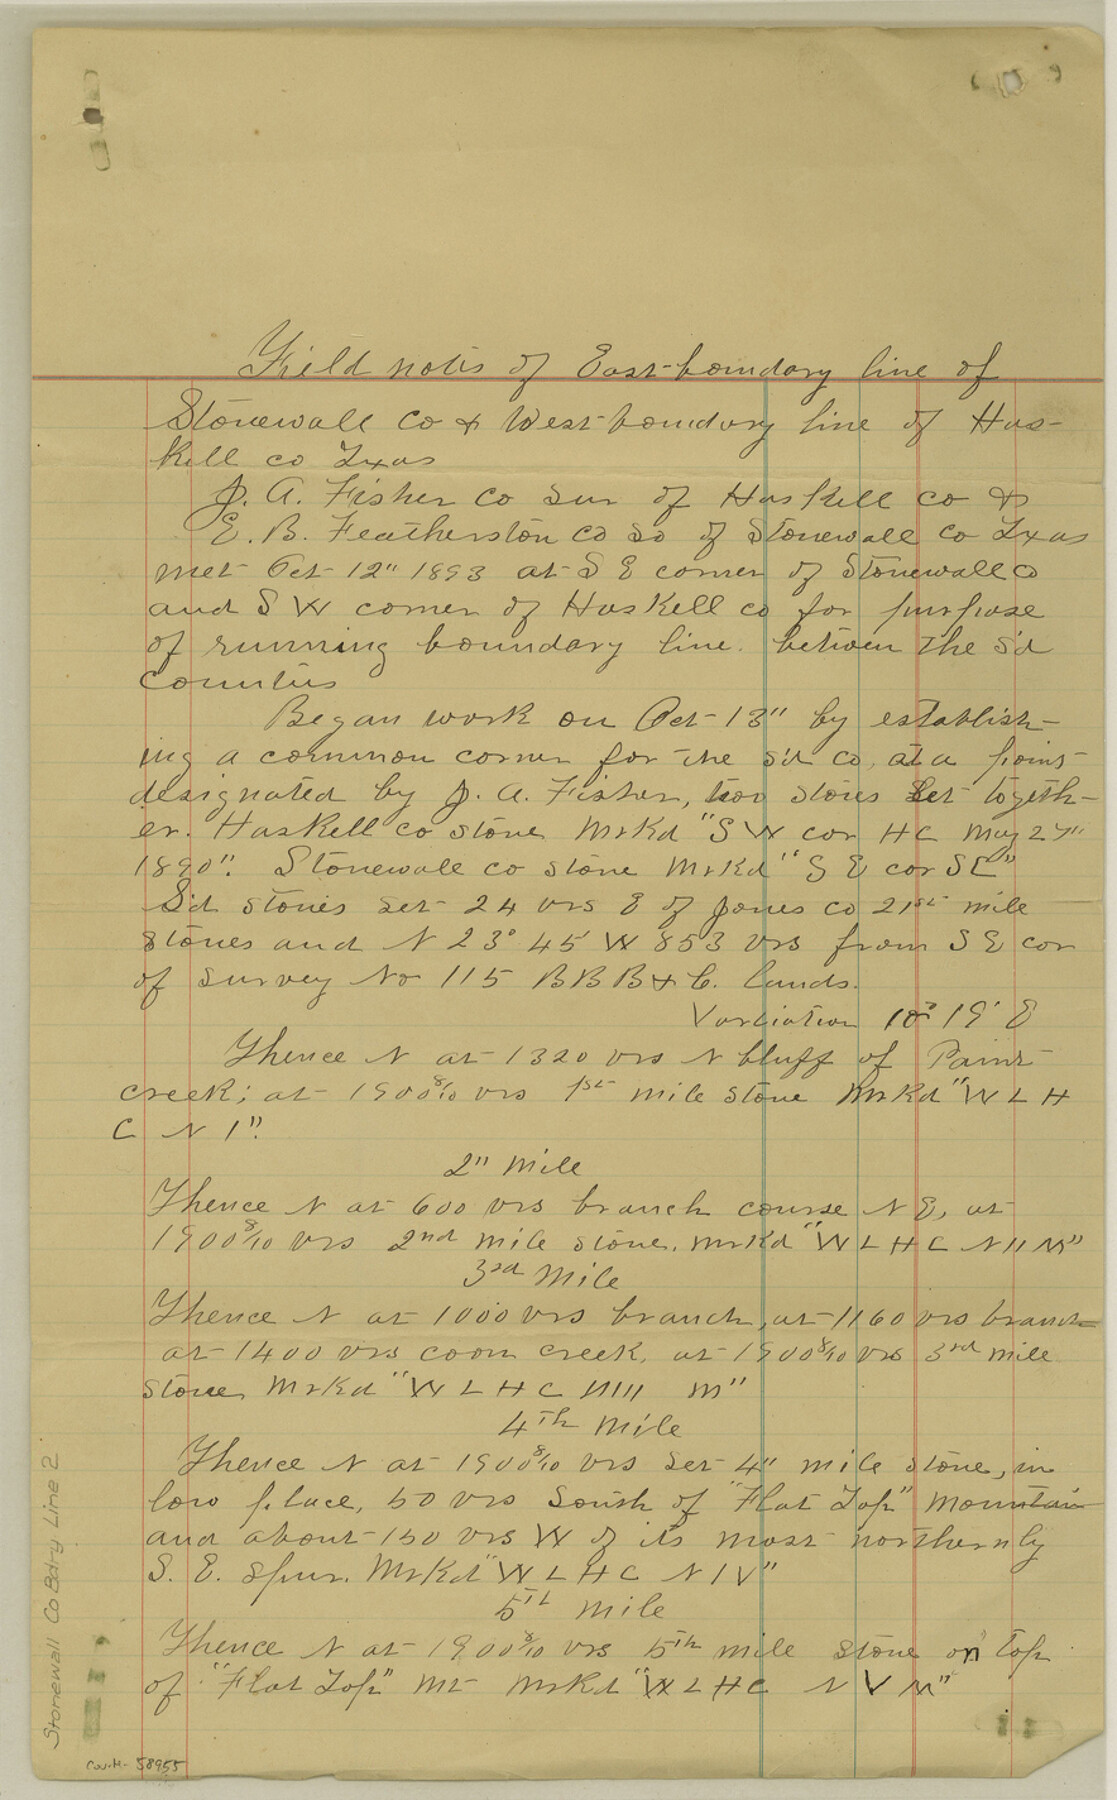 Field notes of East boundary line of
Stonewall Co & West boundary line of Has-
kell co Texas
J. A. Fisher Co Sur of Haskell co &
E. B. Featherston Co So of Stonewall Co Texas
met Oct 12" 1893 at S E corner of Stonewall Co
and S W corner of Haskell co for purpose
of running boundary line between the S'd
Counties
Began work on Oct 13" by establish-
ing a common corner for the s'd Co, at a point
designated by J. A. Fisher, two stones set togeth-
er. Haskell co stone Mrkd "S W cor H C May 27"
1890". Stonewall co stone Mrkd "S E cor S C"
S'd stones set 24 vrs E of Jones co 21st mile
stones and N 23° 45' W 853 vrs from S E cor
of survey No 115 B B B & C. lands.
Variation 10° 19' E
Thence N at 1320 vrs N bluff of Paint
creek; at 1900 8/10 vrs 1st mile stone Mrkd "W L H
C N 1".
2" Mile
Thence N at 600 vrs branch course N E, at
1900 8/10 vrs 2nd mile stone, Mrkd "W L H C N II M"
3rd Mile
Thence N at 1000 vrs branch, at 1160 vrs branch
at 1400 vrs coon creek, at 1900 8/10 vrs 3rd mile
stone Mrkd "W L H C N III M"
4th Mile
Thence N at 1900 8/10 vrs set 4" mile stone, in
low place, 50 vrs South of "Flat Top" Mountain
and about 150 vrs W of its most northernly
S. E. spur. Mrkd "W L H C N IV"
5th Mile
Thence N at 1900 8/10 vrs 5th mile stone on top
of "Flat Top" Mt Mrkd "W L H C N V M"
Stonewall Co Bdry Line 2
Coun- 58955